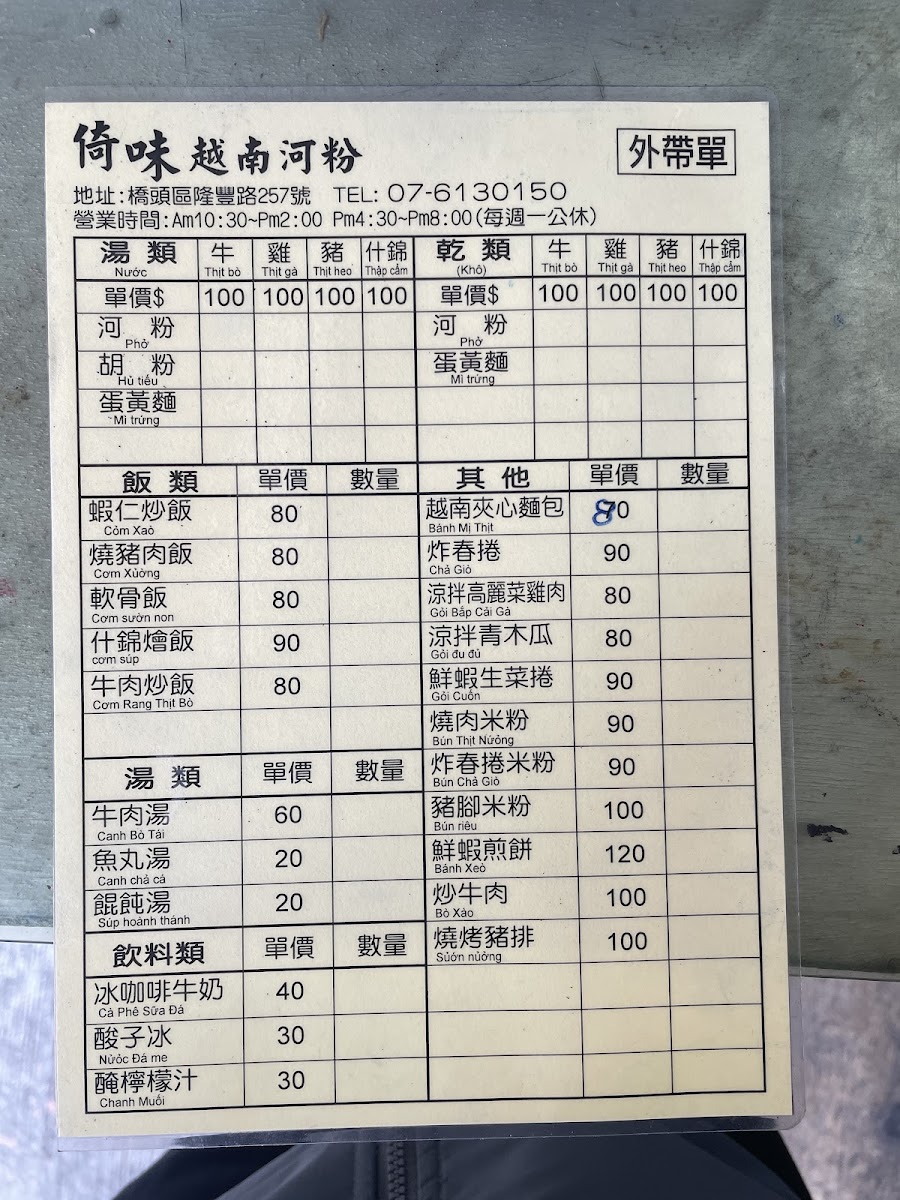 倚味越南河粉 外帶單
地址:橋頭區隆豐路257號 TEL: 07-6130150
營業時間:Am10:30~Pm2:00 Pm4:30~Pm8:00(每週一公休)
湯類 牛 雞 豬 什錦
Nước Thịt bò Thịt gà Thịt heo Thập cẩm
單價$ 100 100 100 100
河粉
Phở
胡粉
Hủ tiếu
蛋黃麵
Mì trứng
乾類 牛 雞 豬 什錦
(Khô) Thịt bò Thịt gà Thịt heo Thập cẩm
單價$ 100 100 100 100
河粉
Phở
蛋黃麵
Mì trứng
飯類 單價 數量
蝦仁炒飯 80
Cỏm Xaò
燒豬肉飯 80
Cơm Xuờng
軟骨飯 80
Cơm sườn non
什錦燴飯 90
cơm súp
牛肉炒飯 80
Cơm Rang Thịt Bò
湯類 單價 數量
牛肉湯 60
Canh Bò Tái
魚丸湯 20
Canh chả cá
餛飩湯 20
Súp hoánh thánh
飲料類 單價 數量
冰咖啡牛奶 40
Cà Phê Sữa Đá
酸子冰 30
Nước Đá me
醃檸檬汁 30
Chanh Muối
其他 單價 數量
越南夾心麵包 80
Bánh Mì Thịt
炸春捲 90
Chả Giò
涼拌高麗菜雞肉 80
Gỏi Bắp Cải Gà
涼拌青木瓜 80
Gỏi đu đủ
鮮蝦生菜捲 90
Gỏi Cuốn
燒肉米粉 90
Bún Thịt Nướng
炸春捲米粉 90
Bún Chả Giò
豬腳米粉 100
Bún riêu
鮮蝦煎餅 120
Bánh Xeò
炒牛肉 100
Bò Xào
燒烤豬排 100
Sườn nướng